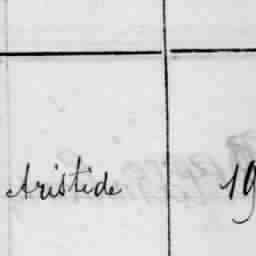 Aristide 19